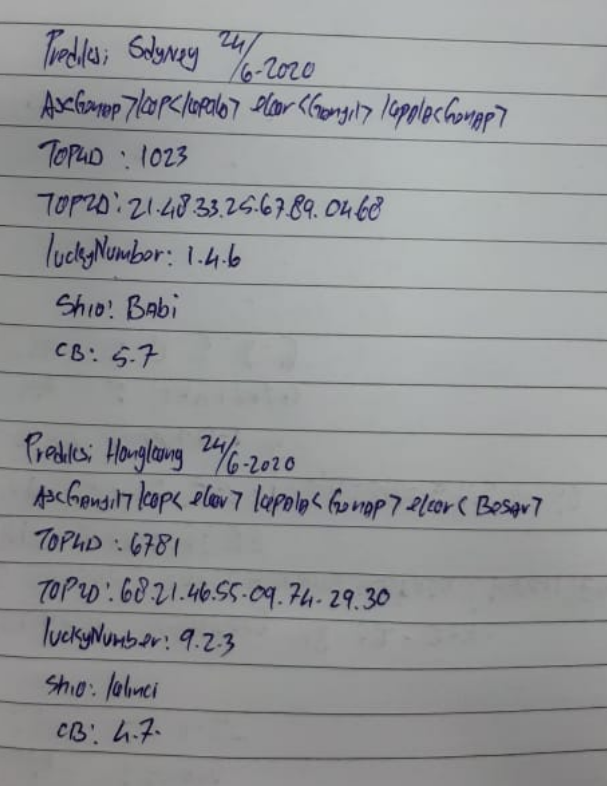 Prediksi Sdyney 24/6-2020
As<Genap> kop<kepala> ekor<Ganjil> kepala<Genap>
TOP4D : 1023
TOP2D: 21.48.33.25.67.89.04.68
luckyNumber: 1.4.6
Shio: Babi
CB: 5.7
Prediksi Hongkong 24/6-2020
As<Ganjil> kop<ekor> kepala<Genap> ekor<Besar>
TOP4D : 6781
TOP2D: 68.21.46.55.09.74.29.30
luckyNumber: 9.2.3
Shio: kelinci
CB: 4.7.